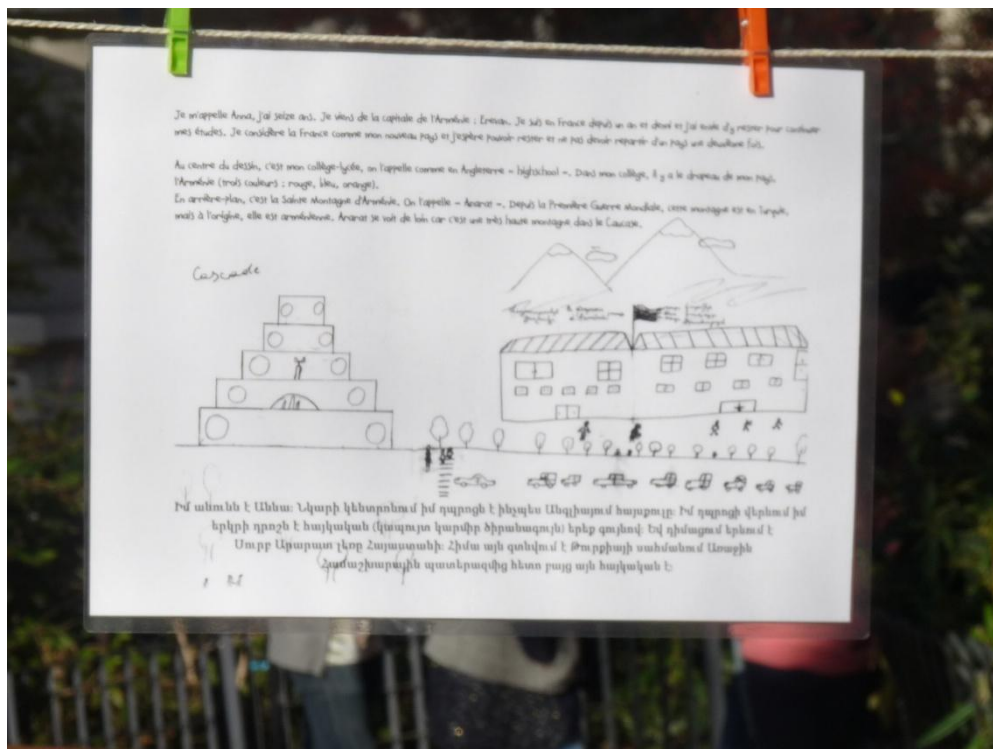 Je m'appelle Anna, j'ai seize ans. Je viens de la capitale de l'Arménie : Erevan. Je suis en France depuis un an et demi et j'ai envie d'y rester pour continuer
mes études. Je considère la France comme mon nouveau pays et j'espère pouvoir rester et ne pas devoir repartir d'un pays une deuxième fois.
Au centre du dessin, c'est mon collège-lycée, on l'appelle comme en Angleterre « highschool ». Dans mon collège, il y a le drapeau de mon pays,
l'Arménie (trois couleurs : rouge, bleu, orange).
En arrière-plan, c'est la Sainte Montagne d'Arménie. On l'appelle « Ararat ». Depuis la Première Guerre Mondiale, cette montagne est en Turquie,
mais à l'origine, elle est arménienne. Ararat se voit de loin car c'est une très haute montagne dans le Caucase.
Cascade
Իմ անունն է Աննա: Նկարի կենտրոնում իմ դպրոցն է ինչպես Անգլիայում հայսքուլը: Իմ դպրոցի վերևում իմ
երկրի դրոշն է հայկական (կապույտ կարմիր ծիրանագույն) երեք գույնով: Եվ դիմացում երևում է
Սուրբ Արարատ լեռը Հայաստանի: Հիմա այն գտնվում է Թուրքիայի սահմանում Առաջին
Համաշխարային պատերազմից հետո բայց այն հայկական է: